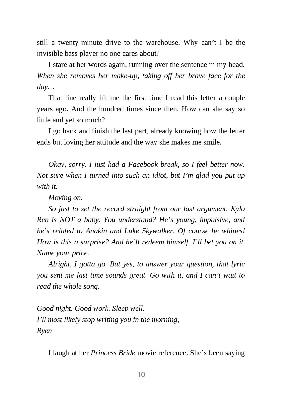 still a twenty-minute drive to the warehouse. Why can't I be the
invisible bass player no one cares about?
I stare at her words again, running over the sentence in my head.
When she removes her make-up, taking off her brave face for the
day…
That line really hit me the first time I read this letter a couple
years ago. And the hundred times since then. How can she say so
little and yet so much?
I go back and finish the last part, already knowing how the letter
ends but loving her attitude and the way she makes me smile.
Okay, sorry. I just had a Facebook break, so I feel better now.
Not sure when I turned into such an idiot, but I'm glad you put up
with it.
Moving on.
So just to set the record straight from our last argument, Kylo
Ren is NOT a baby. You understand? He's young, impulsive, and
he's related to Anakin and Luke Skywalker. Of course he whines!
How is this a surprise? And he'll redeem himself. I'll bet you on it.
Name your price.
Alright, I gotta go. But yes, to answer your question, that lyric
you sent me last time sounds great. Go with it, and I can't wait to
read the whole song.
Good night. Good work. Sleep well.
I'll most likely stop writing you in the morning,
Ryen
I laugh at her Princess Bride movie reference. She's been saying
10